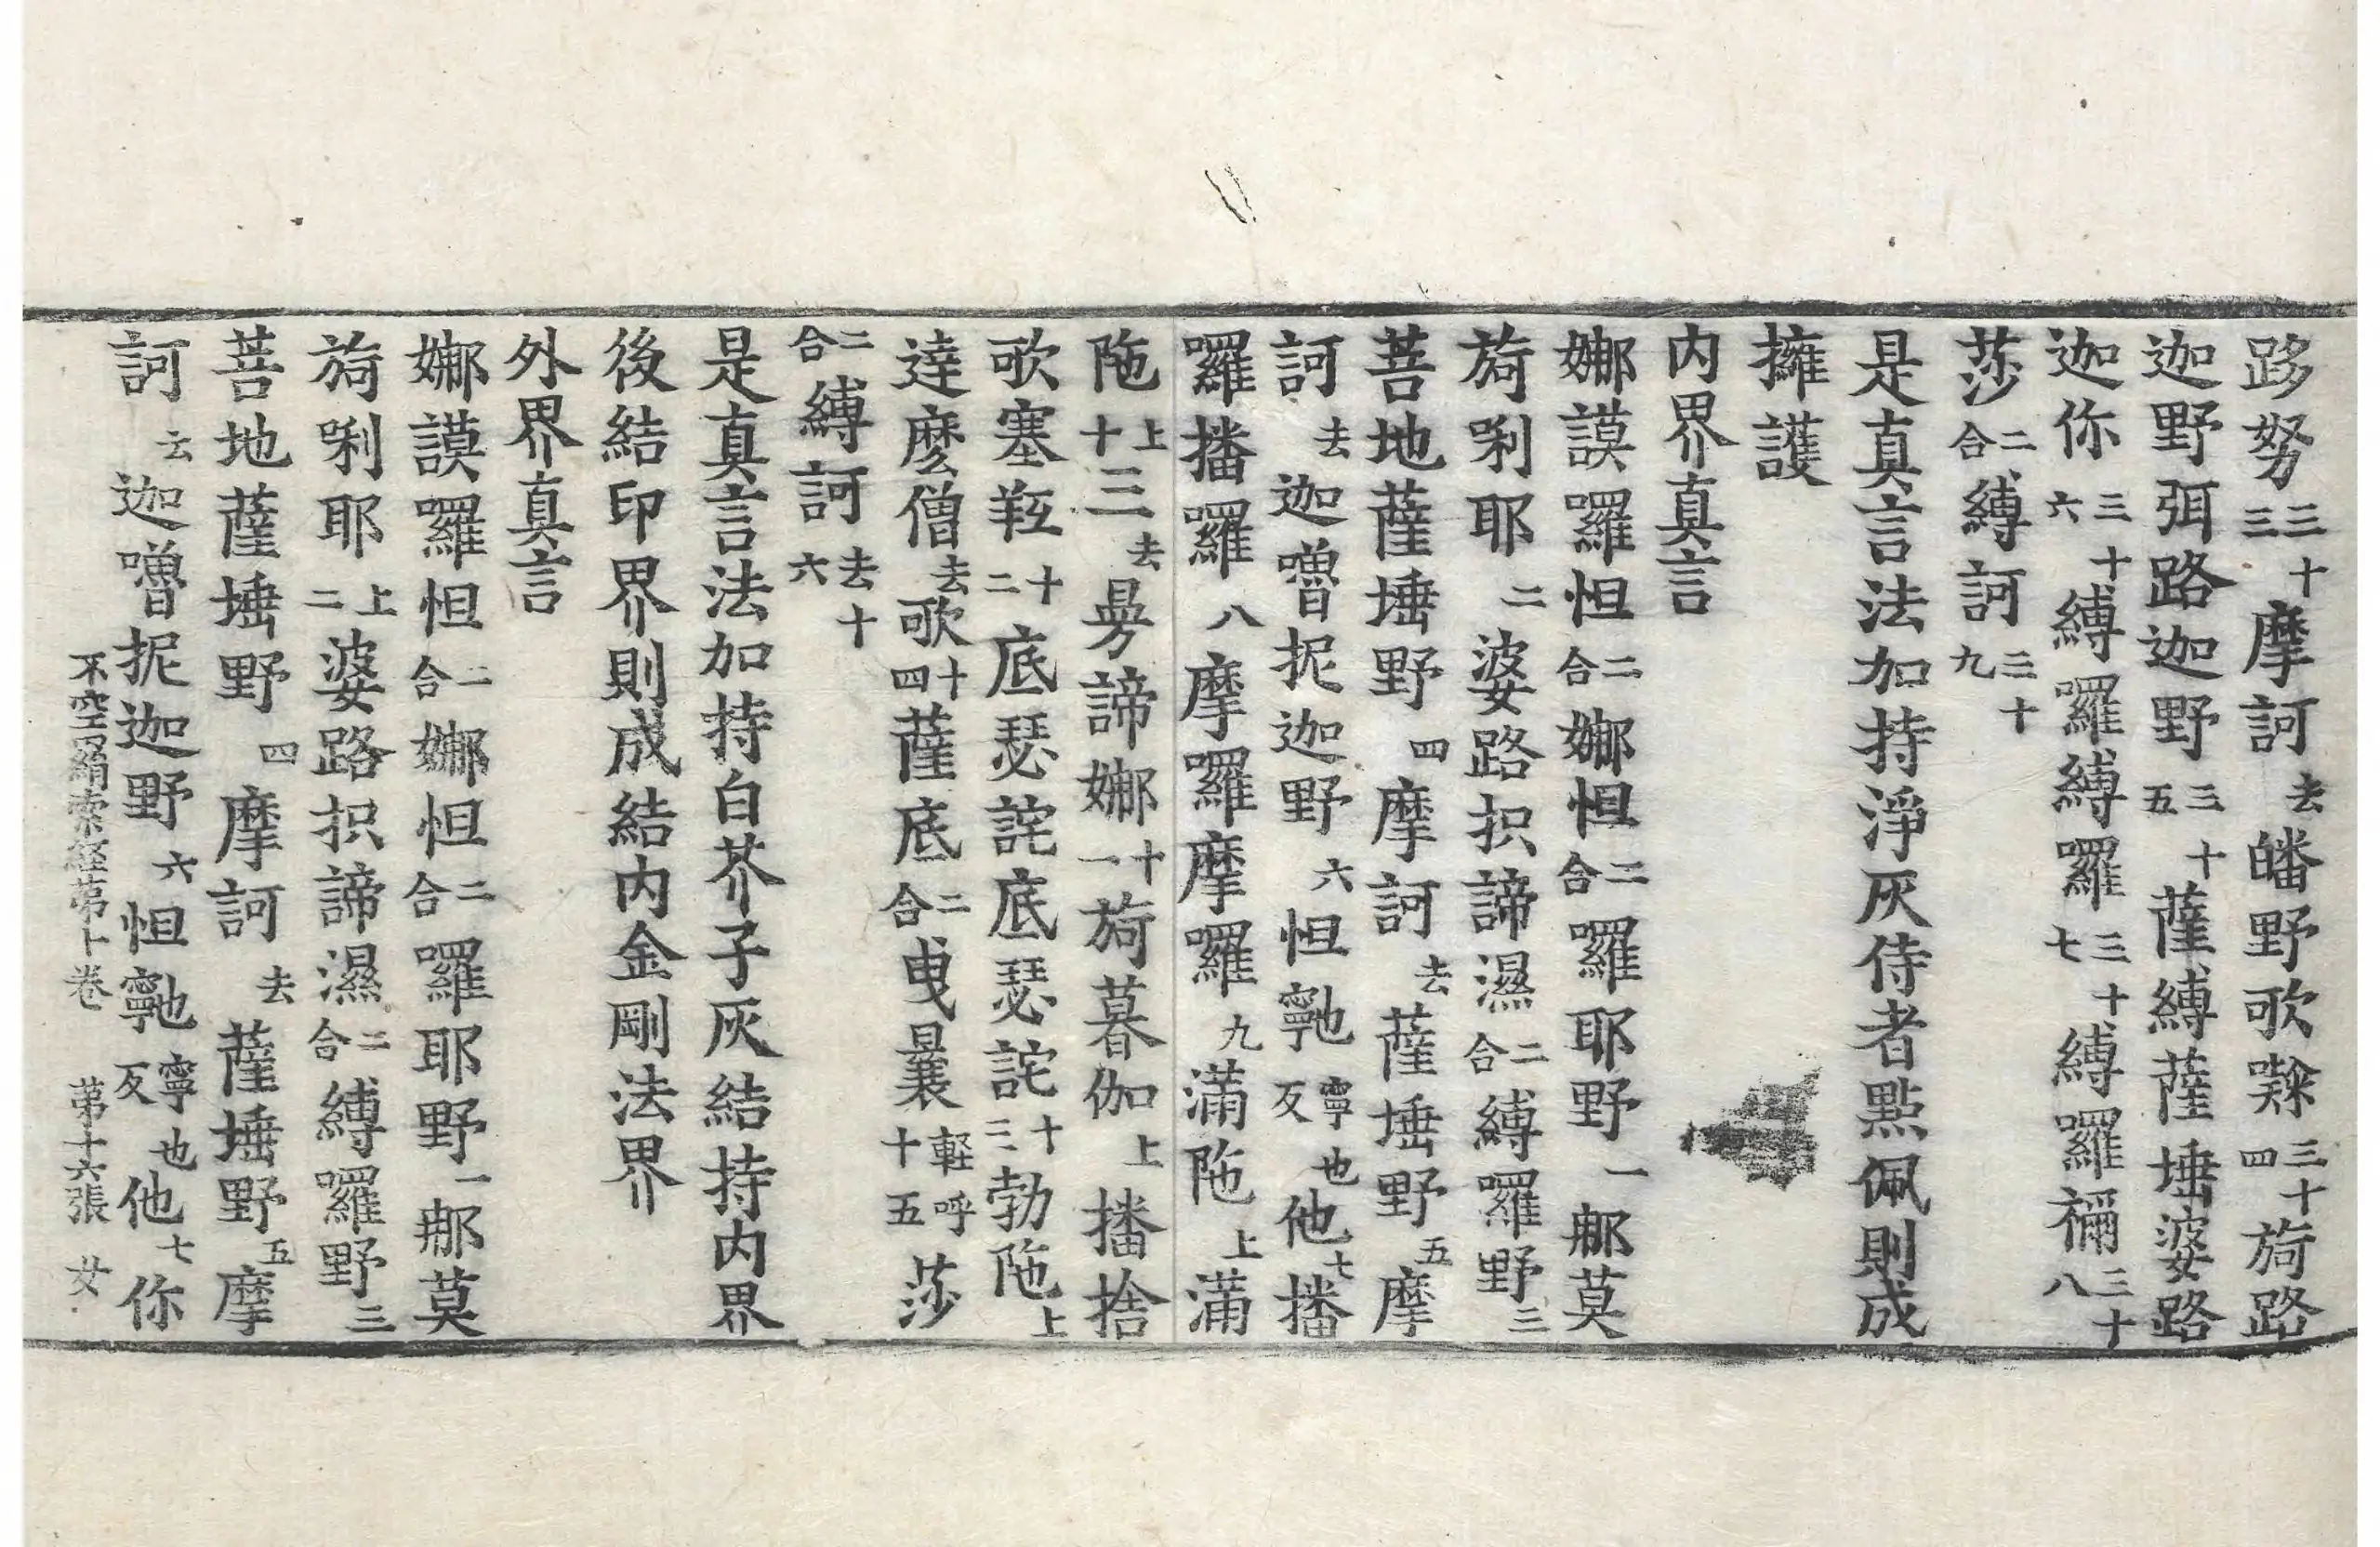 跢努三十三摩訶去皤野歌𭊼三十四旖路
迦野弭路迦野三十五薩縛薩埵婆路
迦你三十六縛囉縛囉三十七縛囉禰三十八
莎二合縛訶三十九
是真言法加持淨灰侍者點佩則成
擁護
內界真言
娜謨囉怛二合娜怛二合囉耶野一那莫
旖唎耶二婆路抧諦濕二合縛囉野三
菩地薩埵野四摩訶去薩埵野五摩
訶去迦嚕抳迦野六怛𭉨寧也反他七播
囉播囉八摩囉摩囉九滿陁上滿
陁上十三去曼諦娜十一旖暮伽上播捨
歌塞䍧十二底瑟詫底瑟詫十三勃陁上
達麽僧去歌十四薩底二合曳曩輕呼十五莎
二合縛訶去十六
是真言法加持白芥子灰結持內界
後結印界則成結內金剛法界
外界真言
娜謨囉怛二合娜怛二合囉耶野一那莫
旖唎耶上二婆路抧諦濕二合縛囉野三
菩地薩埵野四摩訶去薩埵野五摩
訶去迦嚕抳迦野六怛𭉨寧也反他七你
不空羂索経苐十卷 苐十六張 女